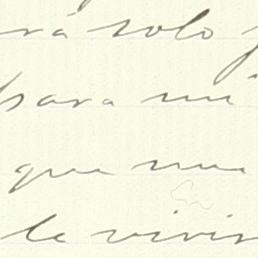 rá solo
para mí
que nue
de vivir